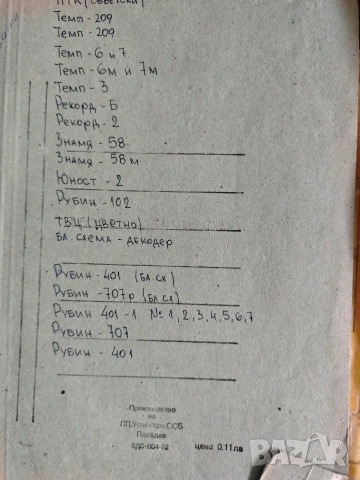 ПТК (съветски)
Темп - 209
Темп - 209
Темп - 6 и 7
Темп - 6м и 7м
Темп - 3
Рекорд - Б
Рекорд - 2
Знамя - 58
Знамя - 58 м
Юност - 2
Рубин - 102
ТВЦ (цветно)
бл. схема - декодер
Рубин - 401 (бл.сх)
Рубин - 707р (бл.сх)
Рубин 401-1 № 1,2,3,4,5,6,7
Рубин - 707
Рубин - 401
Производство
на
ССБ
Пловдив
цена 0.11 лв
BAZAR